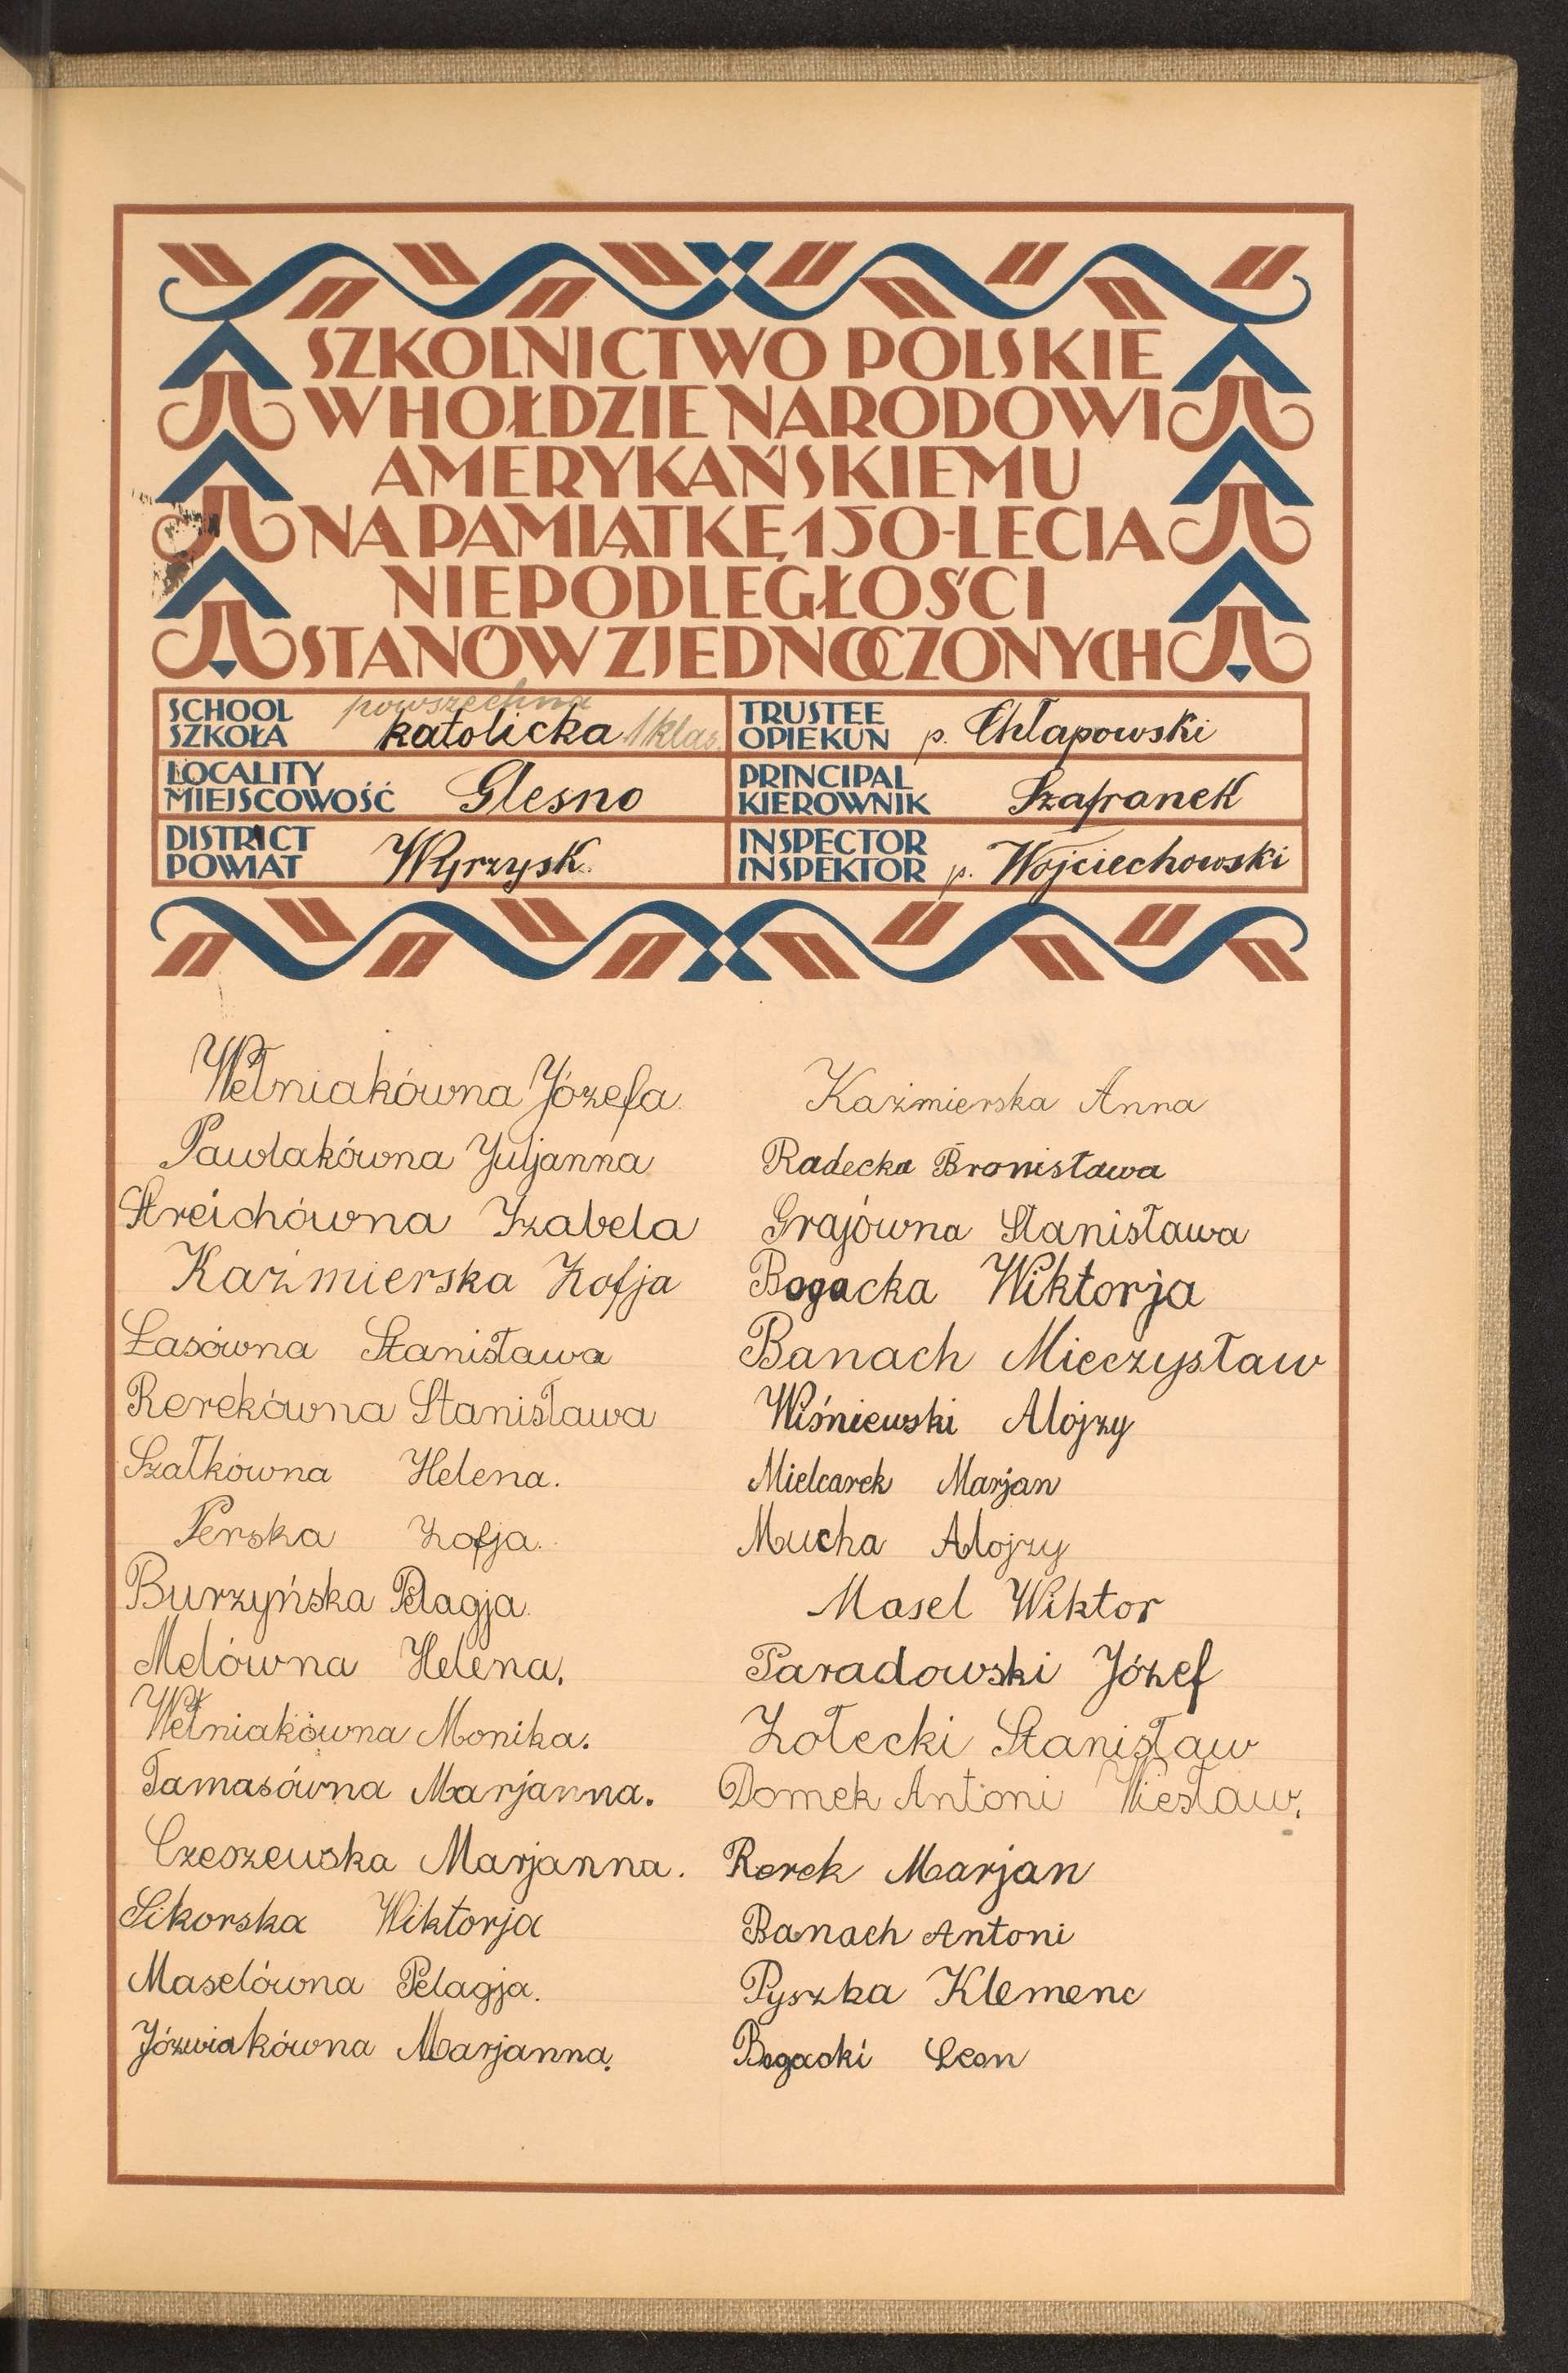 SZKOLNICTWO POLSKIE
W HOŁDZIE NARODOWI
AMERYKAŃSKIEMU
NA PAMIĄTKĘ 150-LECIA
NIEPODLEGŁOŚCI
STANÓW ZJEDNOCZONYCH
SCHOOL
SZKOŁA
powszechna
katolicka 1 klas.
TRUSTEE
OPIEKUN
p. Chłapowski
LOCALITY
MIEJSCOWOŚĆ
Glesno
PRINCIPAL
KIEROWNIK
Szafranek
DISTRICT
POWIAT
Wyrzysk.
INSPECTOR
INSPEKTOR
p. Wojciechowski
Wełniakówna Józefa.
Pawlakówna Juljanna
Streichówna Izabela
Kaźmierska Zofja
Lasówna Stanisława
Rerekówna Stanisława
Szałkówna Helena.
Perska Zofja.
Burzyńska Pelagja
Melówna Helena.
Wełniakówna Monika.
Tamasówna Marjanna.
Czeszewska Marjanna.
Sikorska Wiktorja
Maselówna Pelagja.
Józwiakówna Marjanna.
Kaźmierska Anna
Radecka Bronisława
Grajówna Stanisława
Bogacka Wiktorja
Banach Mieczysław
Wiśniewski Alojzy
Mielcarek Marjan
Mucha Alojzy
Masel Wiktor
Paradowski Józef
Zołecki Stanisław
Domek Antoni Wiesław.
Rerek Marjan
Banach Antoni
Pyszka Klemenc
Bogacki Leon